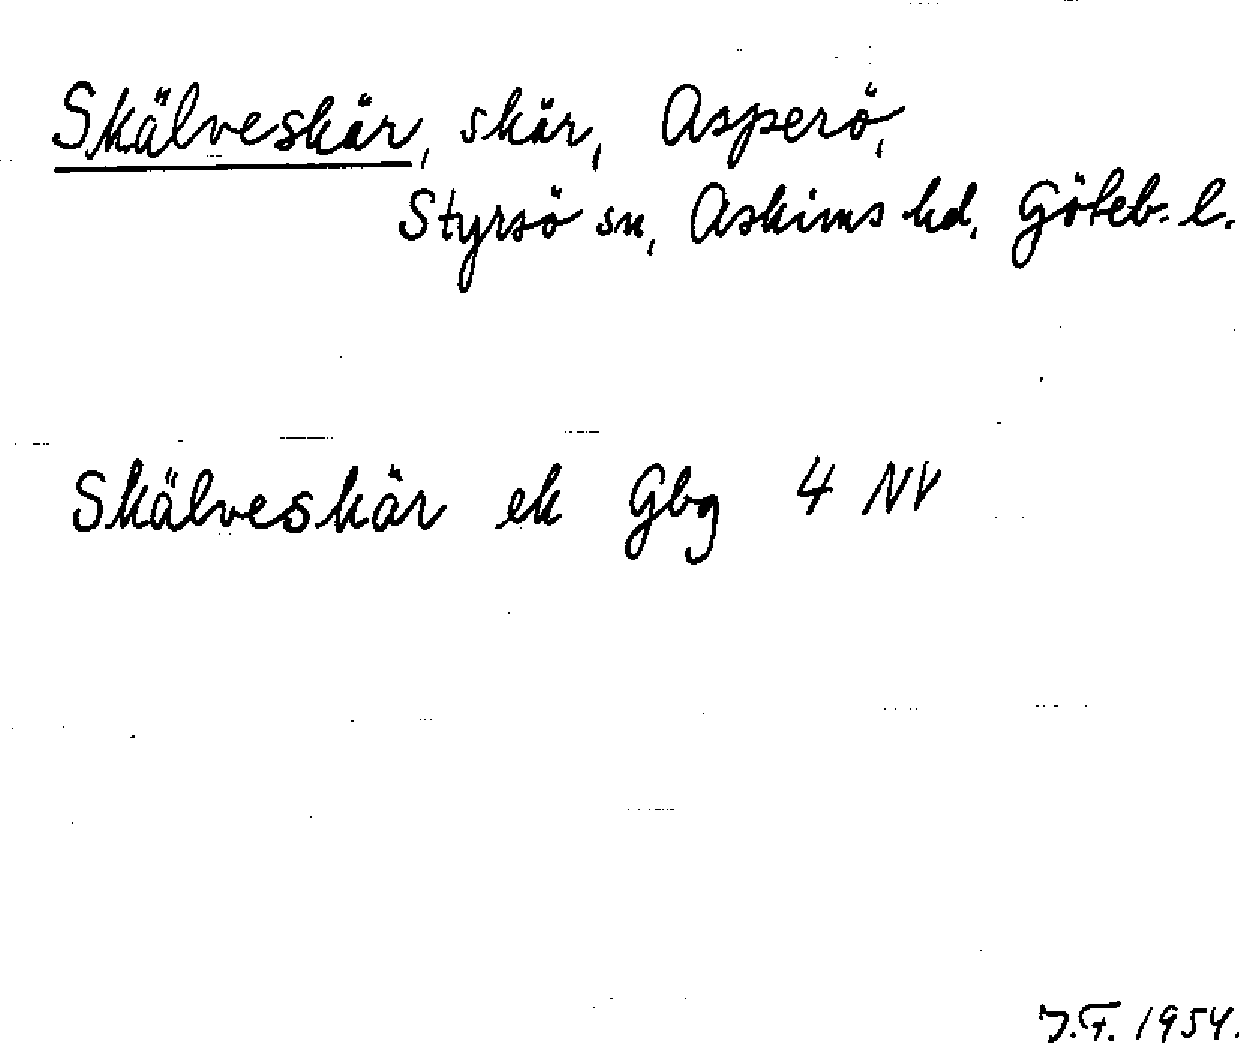 Skälveskär, skär, Asperö,
Styrsö sn, Askims hd, Göteb. l.
Skälveskär ek Gbg 4 NV
J.F. 1954.